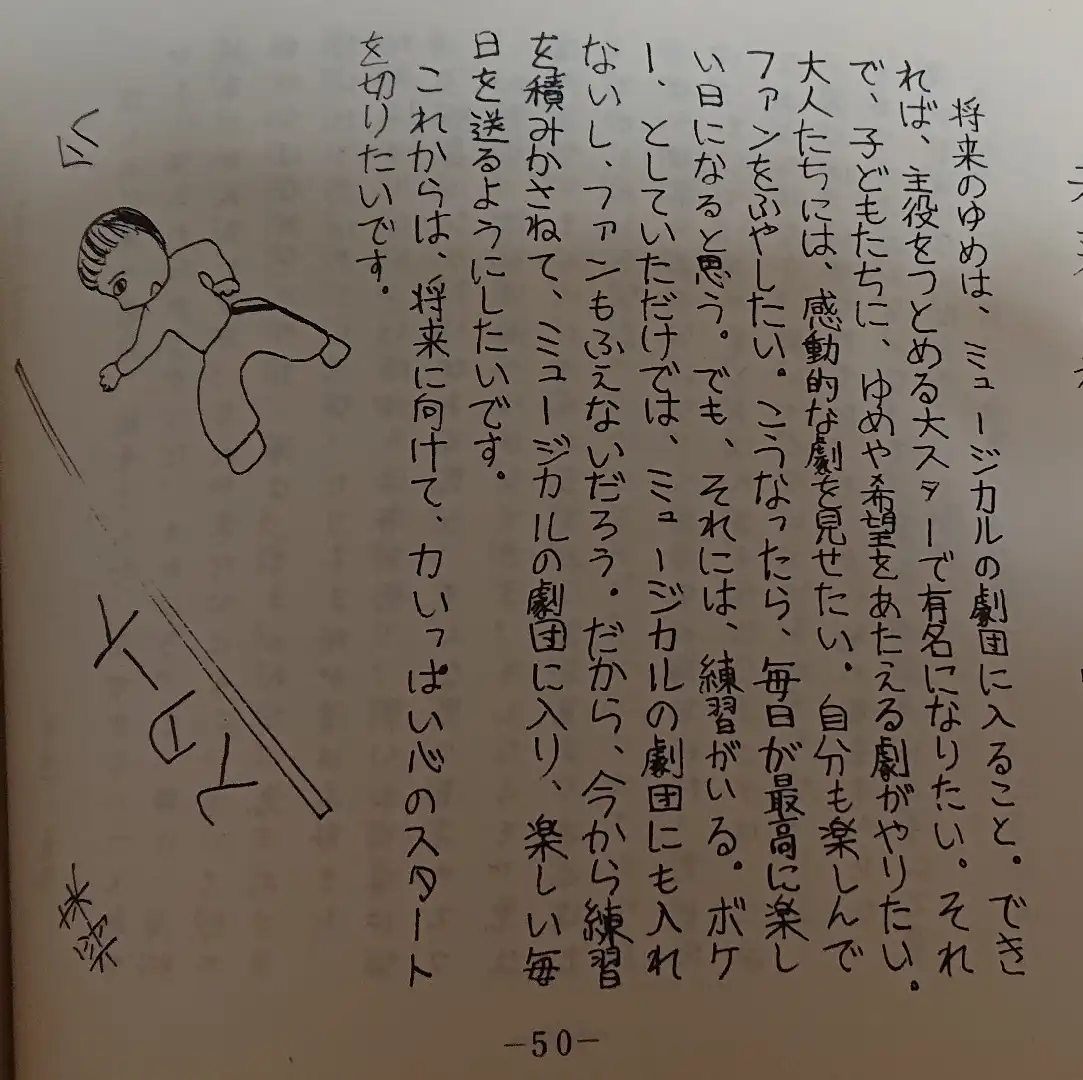 将来のゆめは、ミュージカルの劇団に入ること。でき
れば、主役をつとめる大スターで有名になりたい。それ
で、子どもたちに、ゆめや希望をあたえる劇がやりたい。
大人たちには、感動的な劇を見せたい。自分も楽しんで
ファンをふやしたい。こうなったら、毎日が最高に楽し
い日になると思う。でも、それには、練習がいる。ボケ
ー、としていただけでは、ミュージカルの劇団にも入れ
ないし、ファンもふえないだろう。だから、今から練習
を積みかさねて、ミュージカルの劇団に入り、楽しい毎
日を送るようにしたいです。
これからは、将来に向けて、力いっぱい心のスタート
を切りたいです。
スタート
－50－